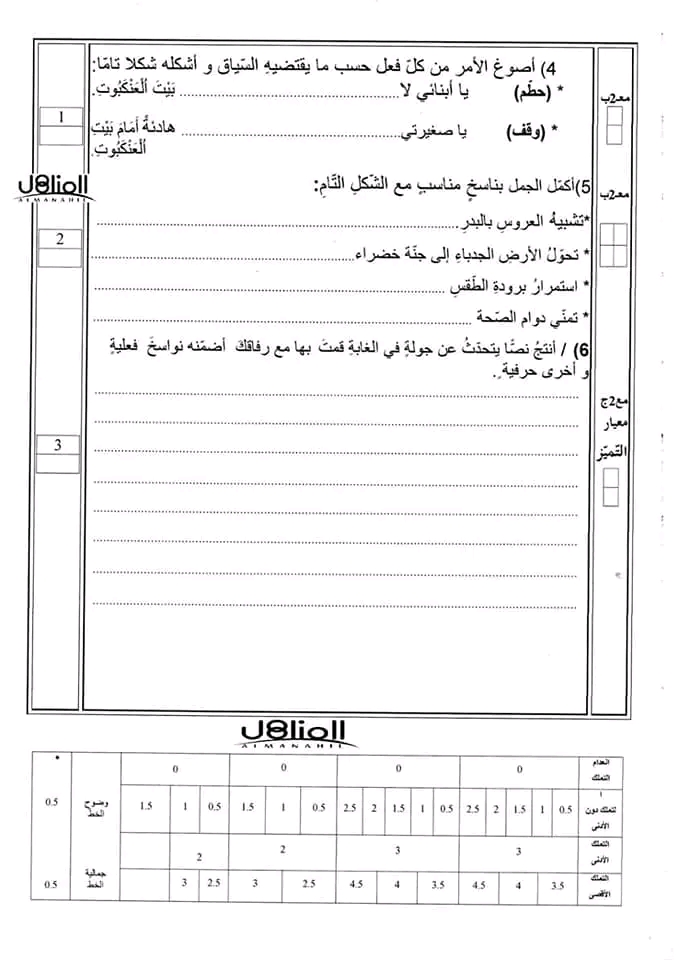 4) أصوغ الأمر من كلّ فعل حسب ما يقتضيهِ السّياق و أشكله شكلا تامّا:
* (حطّم) يا أبنائي لا........................ بَيْتَ اُلْعَنْكَبُوتِ.
* (وقف) يا صغيرتي........................ هادئةً أمَامَ بَيْتِ
اُلْعَنْكَبُوتِ.
مع2ب
1
5)أكمّل الجمل بناسخٍ مناسبٍ مع الشّكلِ التّامِ:
مع2ب
المناهل
ALMANAHIL
*تشبيهُ العروسِ بالبدرِ........................
2
* تحوّلُ الأرضِ الجدباءِ إلى جنّة خضراء........................
* استمرارُ برودةِ الطّقسِ ........................
* تمنّي دوام الصّحة ........................
6) / أنتجُ نصًّا يتحدّثُ عن جولةٍ في الغابةِ قمتَ بها مع رفاقكَ أضمّنه نواسخَ فعليةٍ
و أخرى حرفيةٍ.
مع2ج
معيار
التّميّز
3
المناهل
ALMANAHIL
انعدام التملك 0 0 0 0 *
ا
لتملك دون الأدنى 0.5 1 1.5 2 2.5 0.5 1 1.5 2 2.5 0.5 1 1.5 0.5 1 1.5 وضوح الخط 0.5
التملك الأدنى 3 3 2 2
التملك الأقصى 3.5 4 4.5 3.5 4 4.5 2.5 3 2.5 3 جمالية الخط 0.5